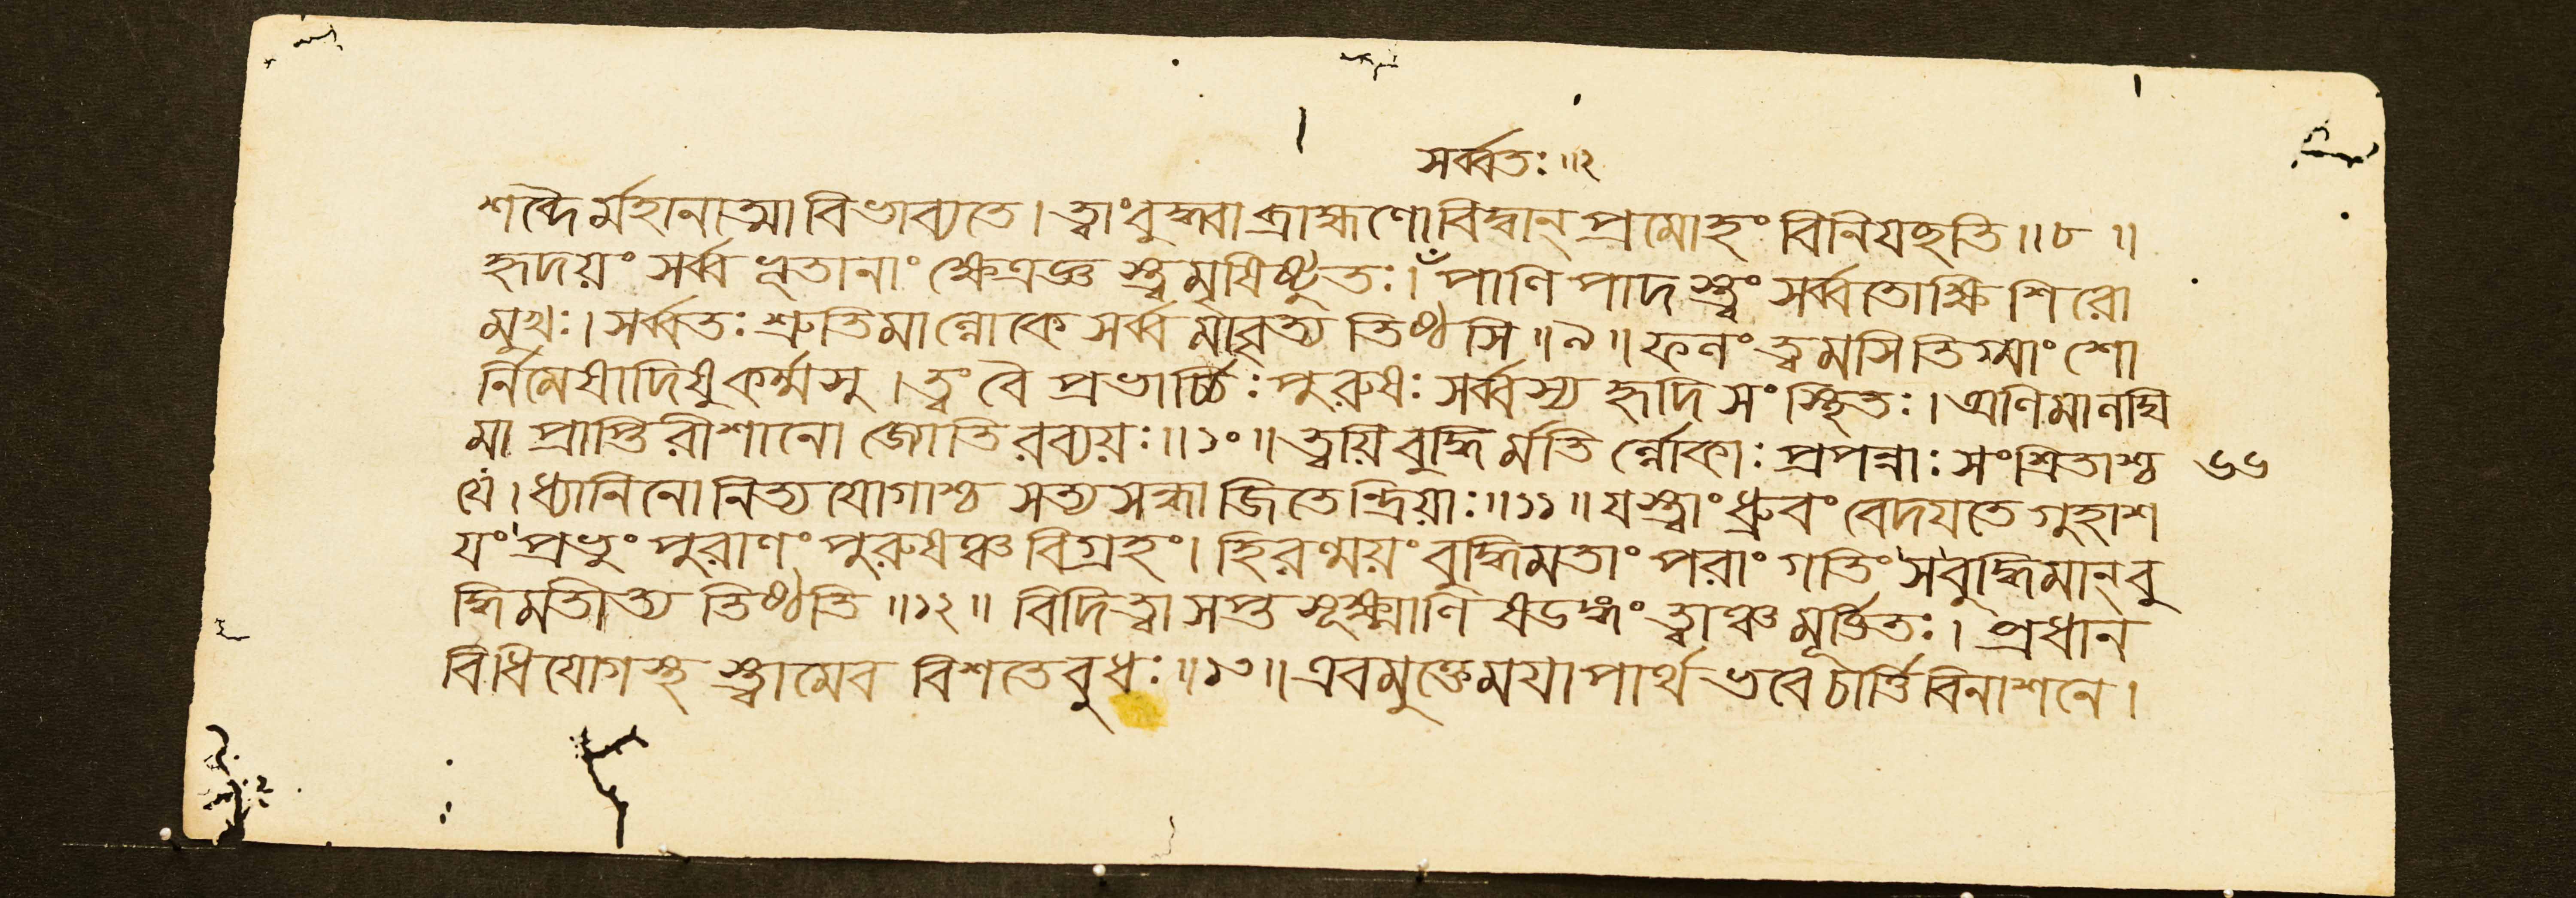 সর্ব্বতঃ॥২
শব্দৈর্মহানাত্মা বিভাব্যতে। ত্বাং বুদ্ধ্বা ব্রাহ্মণো বিদ্বান্ প্রমোহং বিনিযচ্ছতি॥৮॥
হৃদয়ং সর্ব্বভূতানাং ক্ষেত্রজ্ঞস্ত্বমৃষিষ্টুতঃ। পাণিপাদস্ত্বং সর্ব্বতোক্ষিশিরো
মুখঃ। সর্ব্বতঃ শ্রুতিমাল্লোকে সর্ব্বমাবৃত্য তিষ্ঠসি॥৯॥ ফলং ত্বমসি তিগ্মাংশো
র্নিমেষাদিষু কর্ম্মসু। ত্বং বৈ প্রভার্চ্চিঃ পুরুষঃ সর্ব্বস্য হৃদি সংস্থিতঃ। অণিমা লঘি
মা প্রাপ্তিরীশানো জ্যোতিরব্যয়ঃ॥১০॥ ত্বয়ি বুদ্ধির্মতির্ল্লোকাঃ প্রপন্নাঃ সংশ্রিতাশ্চ ৬৬
যে। ধ্যানিনো নিত্যযোগাশ্চ সত্যসন্ধা জিতেন্দ্রিয়াঃ॥১১॥ যস্ত্বাং ধ্রুবং বেদযতে গুহাশ
যং প্রভুং পুরাণং পুরুষঞ্চ বিগ্রহং। হিরণ্ময়ং বুদ্ধিমতাং পরাং গতিং স বুদ্ধিমান্ বু
দ্ধিমতীত্য তিষ্ঠতি॥১২॥ বিদিত্বা সপ্ত সূক্ষ্মাণি ষডঙ্গং ত্বাঞ্চ মূর্ত্তিতঃ। প্রধান
বিধিযোগস্থস্ত্বামেব বিশতে বুধঃ॥১৩॥ এবমুক্তে ময়া পার্থ ভবে চার্ত্তিবিনাশনে।